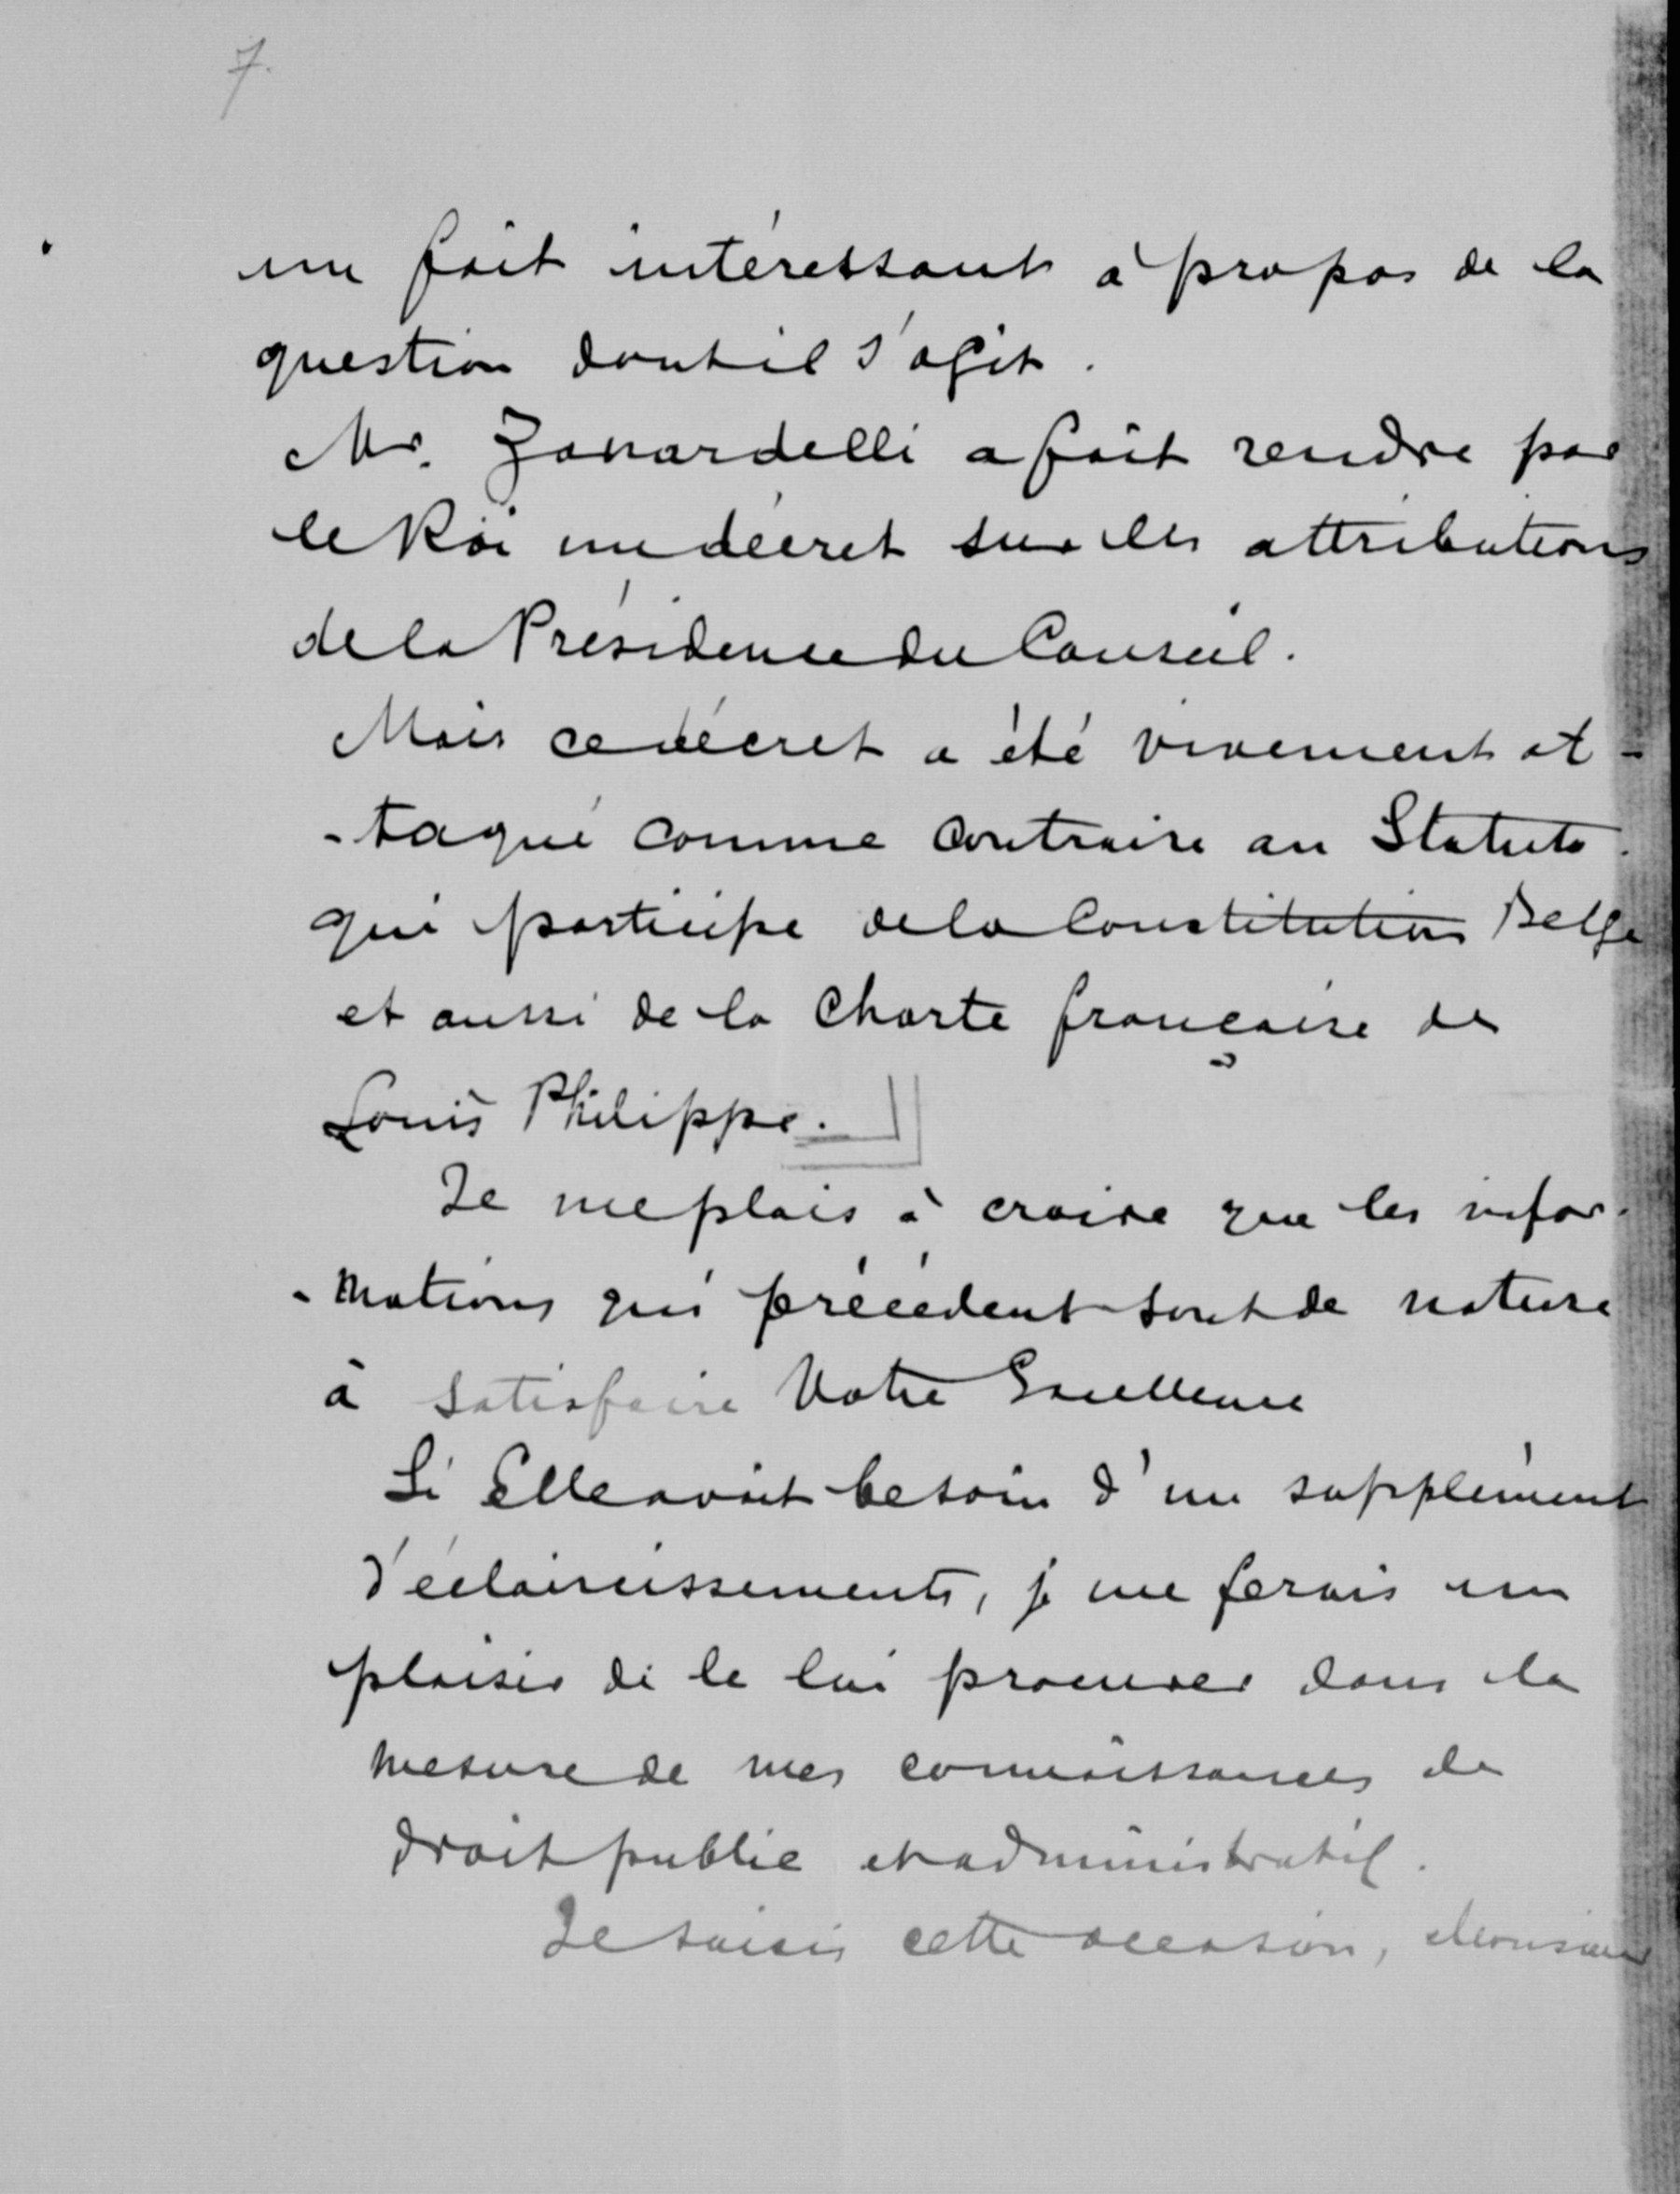 7.
un fait intéressant à propos de la
question dont il s'agit.
Mr. Zanardelli a fait rendre par
le Roi un décret sur les attributions
de la Présidence du Conseil.
Mais ce décret a été vivement at-
-taqué comme contraire au Statuto
qui participe de la Constitution Belge
et aussi de la Charte française de
Louis Philippe.
Je me plais à croire que les infor-
-mations qui précèdent sont de nature
à satisfaire Votre Excellence
Si Elle avait besoin d'un supplément
d'éclaircissements, je me ferais un
plaisir de le lui procurer dans la
mesure de mes connaissances de
droit public et administratif.
Je saisis cette occasion, Monsieur